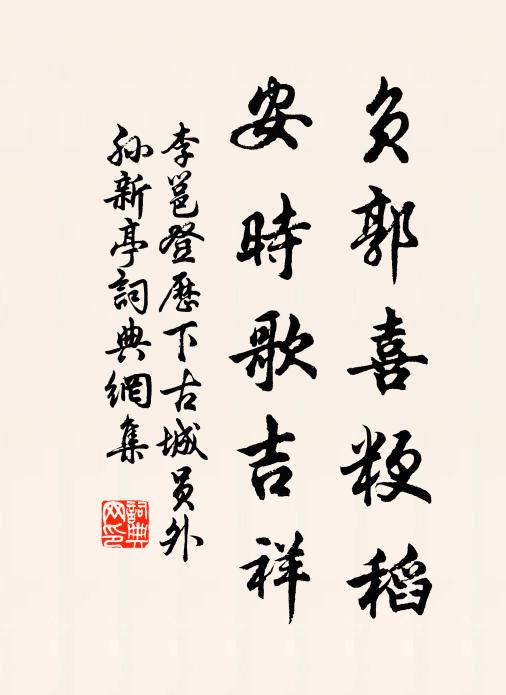 负郭喜粳稻
安時歌吉祥
李邕登歷下古城員外
孙新亭詞典網集
詞典网印